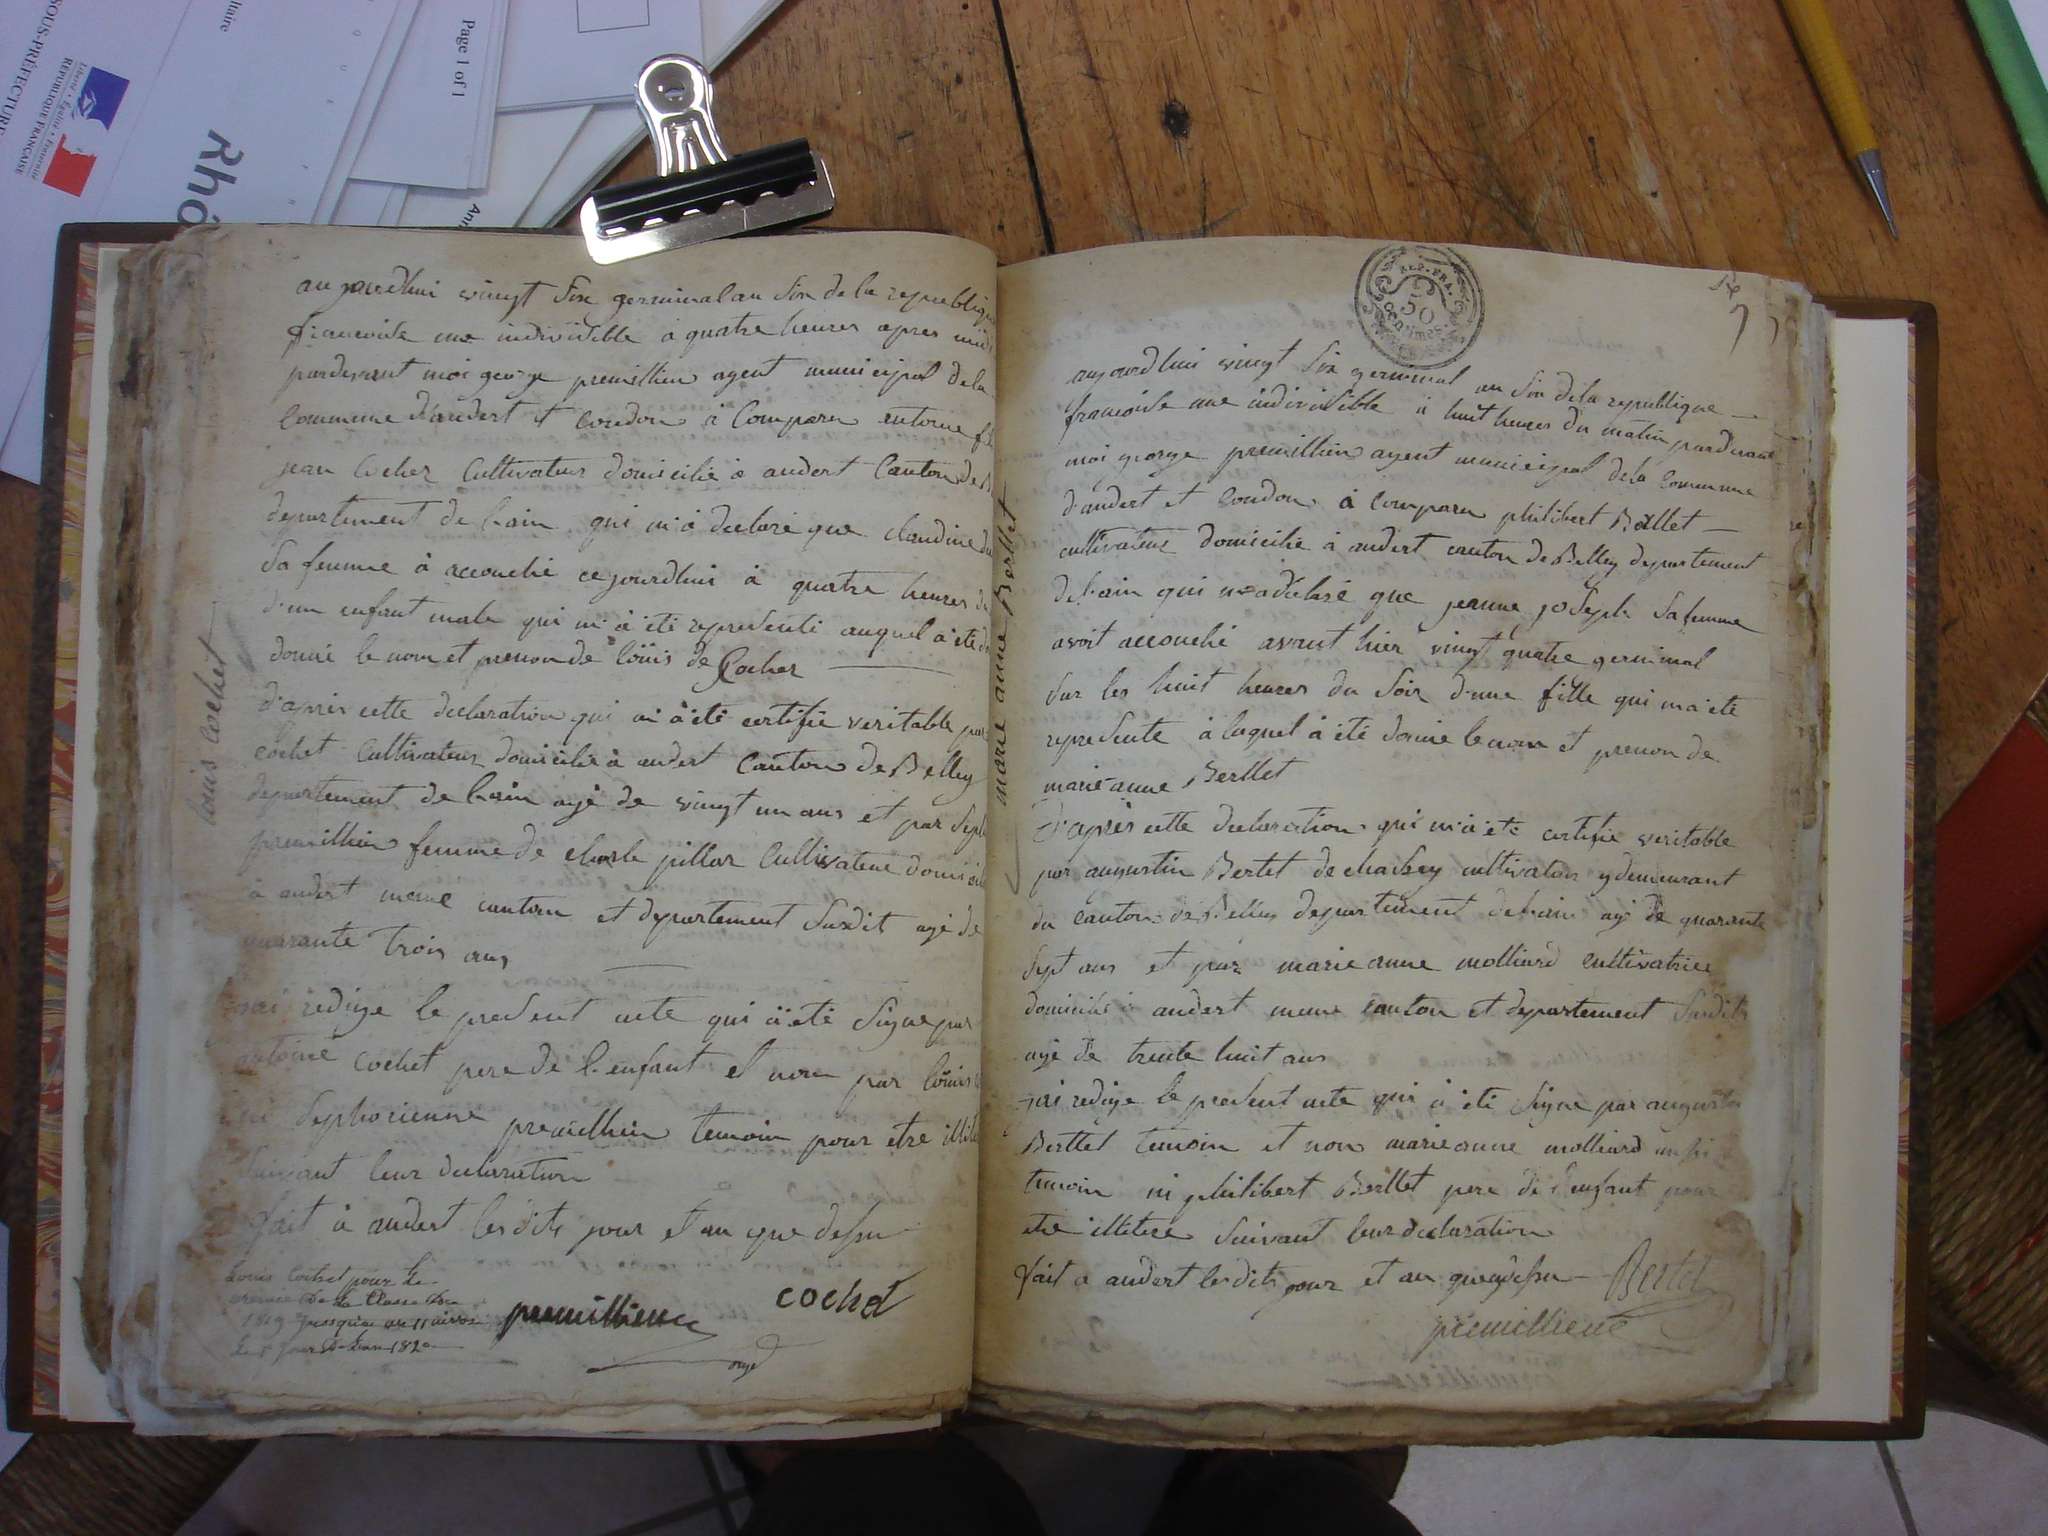 SOUS-PRÉFECTURE
Liberté • Égalité • Fraternité
RÉPUBLIQUE FRANÇAISE
Rhô
Page 1 of 1
louis cochet
aujourdhui vingt six germinal an six de la republique
francoise une indivisible à quatre heures apres midi
pardevant moi george premillieu agent municipal de la
commune dandert et condon à comparu entoine fils
jean cocher cultivateur domicilié à andert canton de B
departement de l'ain qui m'a declaré que claudine
sa femme à accouché cejourdhui à quatre heures du
d'un enfant male qui m'a été representé auquel à été
donné le nom et prenon de loüis de Cocher
d'après cette declaration qui m'à été certifié veritable par
cochet cultivateur domicilié à andert canton de Belley
departement de l'ain agé de vingt un ans et par
premillieu femme de charle pillar cultivateur domicilié
à andert meme canton et departement susdit agé de
quarante trois ans
jai redige le present acte qui à été signe par
antoine cochet pere de l'enfant et non par loüis
ni Sephorienne premillieu temoin pour etre illite
suivant leur declaration
fait à andert lesdits jour et an que dessu
Louis Cochet pour le
de la Classe de
1819 jusquau 11
le 1er jour de lan 1820
premillieu
cochet
REP. FRA.
50
centimes
7
marie anne Berllet
aujourdhui vingt six germinal an six dela republique
francoise une indivisible à huit heures du matin pardevant
moi george premillieu agent municipal dela commune
d'andert et condon à comparu philibert Bellet
cultivateur domicilié à andert canton de Belley departement
de l'ain qui m'a déclaré que jeanne joseph sa femme
avoit accouché avant hier vingt quatre germinal
sur les huit heures du soir d'une fille qui ma été
representé à laquel à été donné le nom et prenon de
marie anne Berllet
d'après cette declaration qui m'à été certifié veritable
par augustin Bertet de chazey cultivateur y demeurant
du canton de Belley departement de l'ain agé de quarante
sept ans et par marie anne molliard cultivatrice
domicilié à andert meme canton et departement susdits
agé de trente huit ans
jai redige le present acte qui à été signe par augustin
Berttet temoin et non marie anne molliard
temoin ni philibert Berllet pere de l'enfant pour
etre illitere suivant leur declaration
fait a andert lesdits jour et an que dessu
Bertet
premillieu